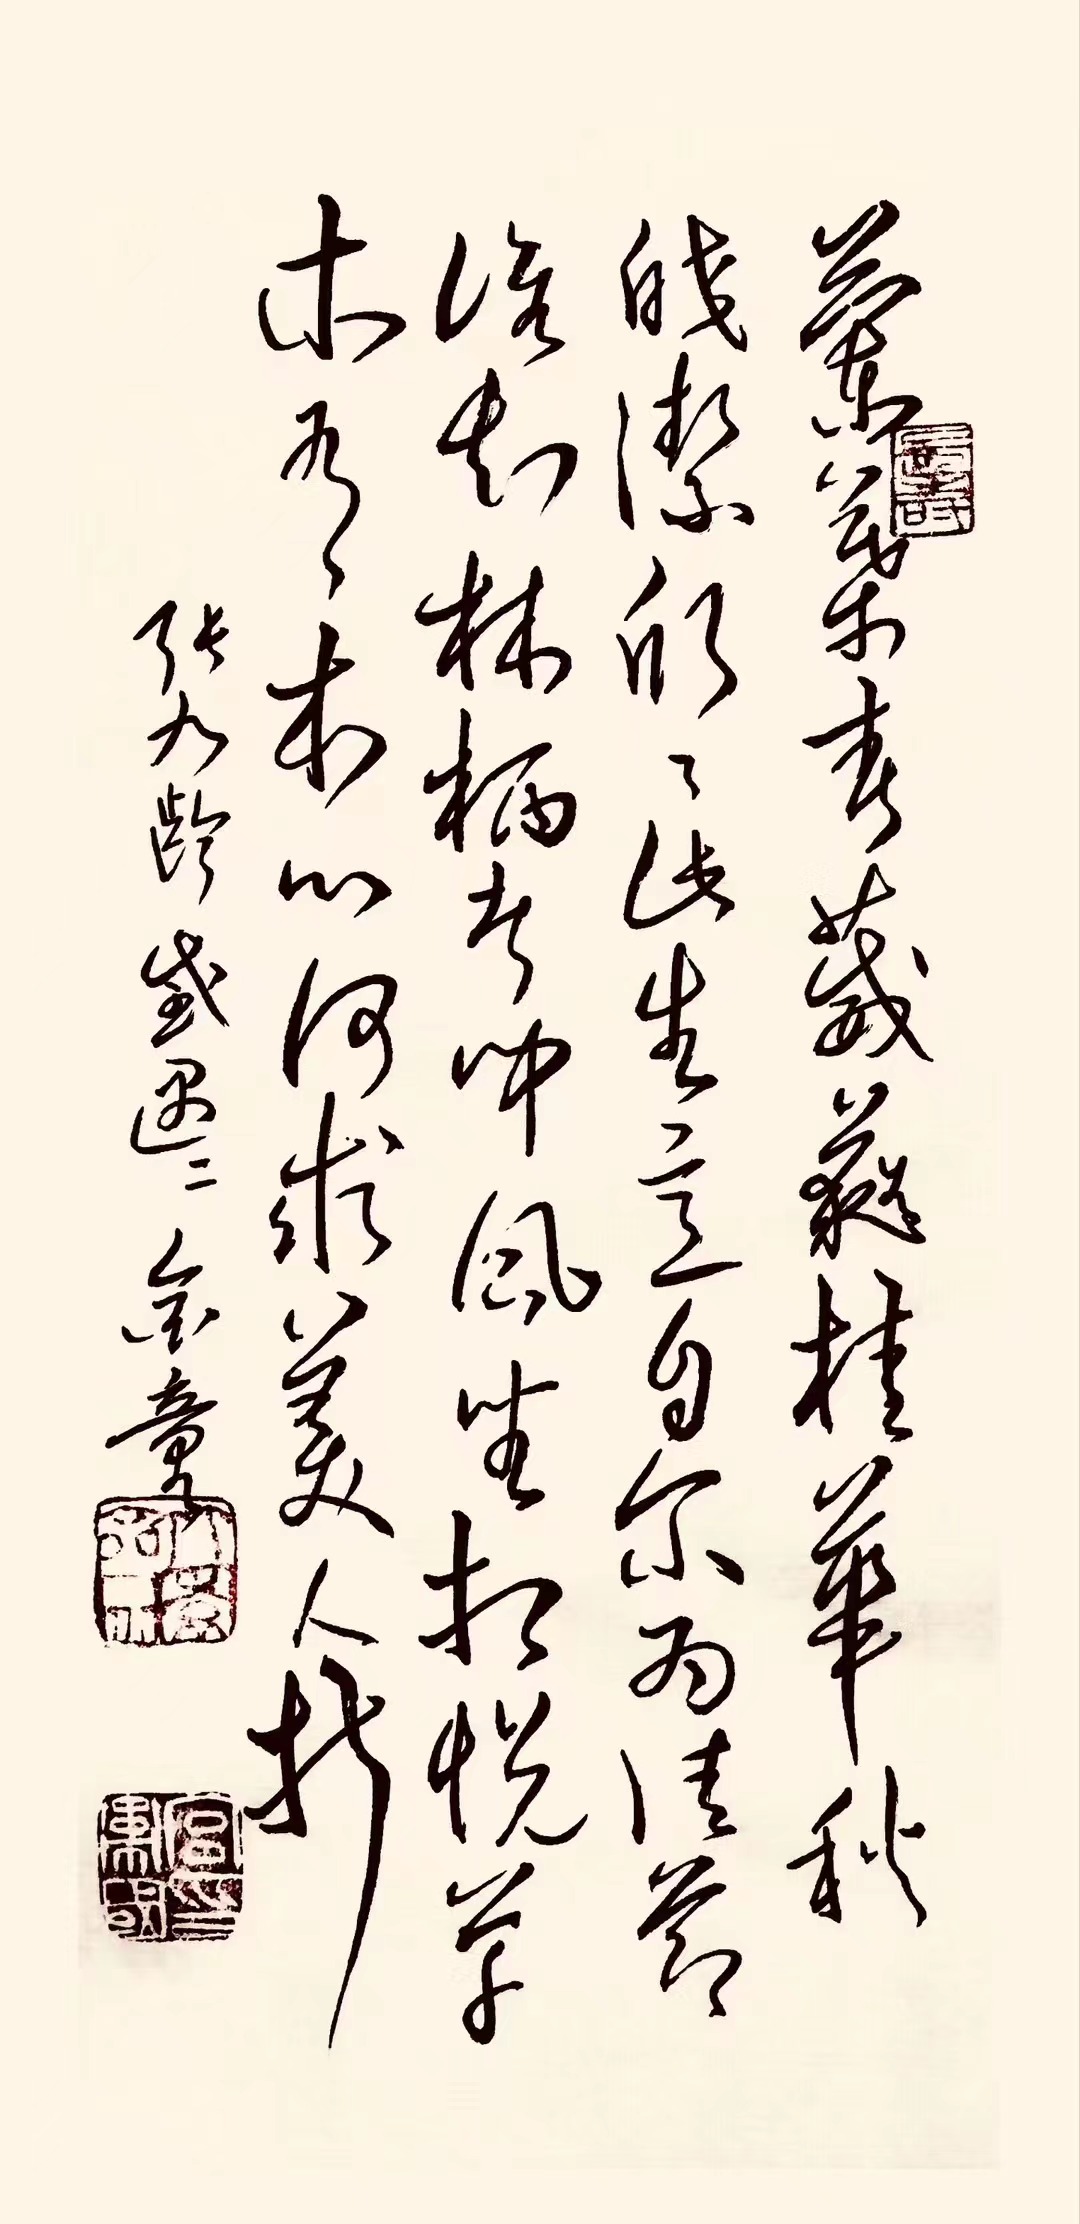 蘭葉春葳蕤桂華秋
皎潔欣〻此生意自尔为佳節
誰知林栖者闻風坐相悦草
木有本心何求美人折
張九齡感遇二